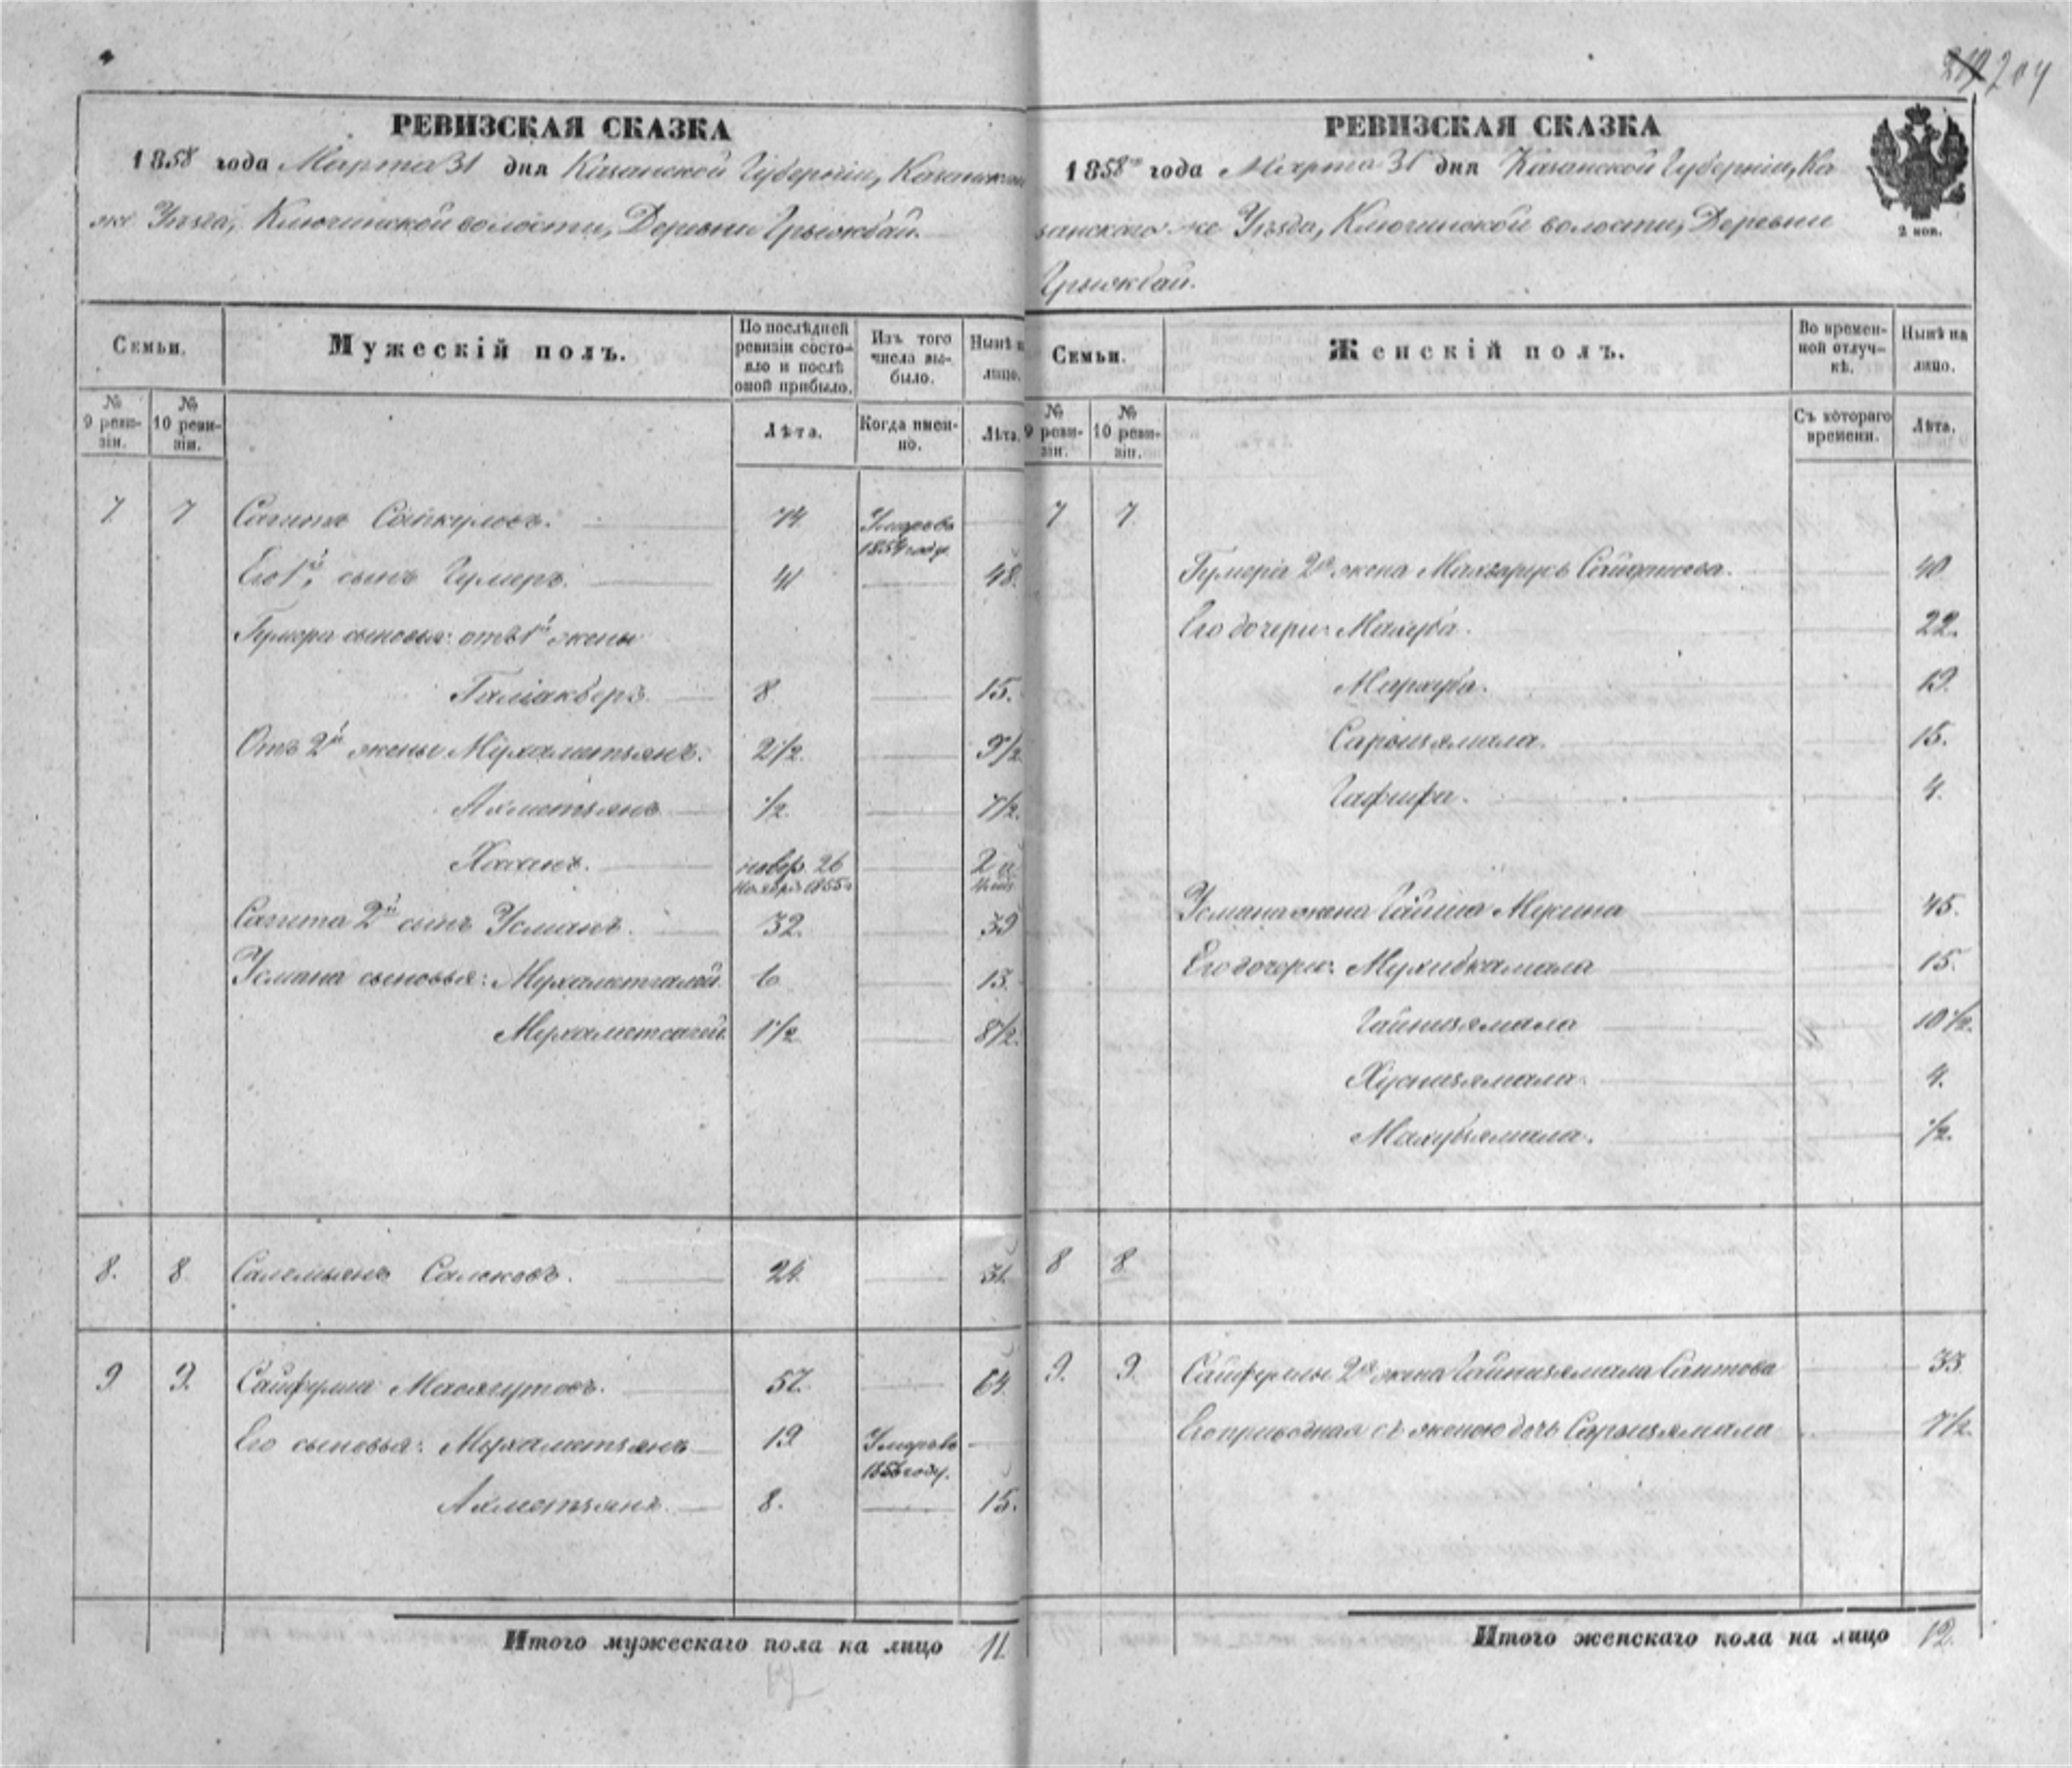 219 204
РЕВИЗСКАЯ СКАЗКА
1858 года Марта 31 дня Казанской Губерніи, Казанскаго
же Уѣзда, Ключинской волости, Деревни
Семьи.
Мужескій полъ.
По послѣдней ревизіи состояло и послѣ оной прибыло.
Изъ того числа выбыло.
Нынѣ на лицо.
№ 9 ревизіи.
№ 10 ревизіи.
Лѣта.
Когда именно.
Лѣта.
7 7 Сагитъ Сайкуловъ. 74 Умеръ въ 1854 году.
Его 1й, сынъ Гумеръ. 41 48.
Гумера сыновья: отъ 1й жены
Галіакберъ 8 15.
Отъ 2й жены Мухаметзянъ. 2 1/2 9 1/2
Ахметзянъ 1/2 7 1/2.
Хасанъ. 26 Ноября 1855 2
Сагита 2й сынъ Усманъ. 32. 39
Усмана сыновья: Мухаметгалей 6 13.
Мухаметсагей 1 1/2 8 1/2.
8. 8 24. 31.
9 9. Сайфулла Масягутовъ. 57. 64.
Его сыновья: Мухаметзянъ 19 Умеръ въ году.
Ахметзянъ. 8. 15.
Итого мужескаго пола на лицо 11.
РЕВИЗСКАЯ СКАЗКА
1858го года Марта 31 дня Казанской Губерніи, Ка
занскаго же Уѣзда, Ключинской волости, Деревни
2 коп.
Семьи.
Женскій полъ.
Во временной отлучкѣ.
Нынѣ на лицо.
№ 9 ревизіи.
№ 10 ревизіи.
Съ котораго времени.
Лѣта.
7 7
Гумера 2я жена 40
Его дочери: Махуба. 22.
Мархуба. 19.
Сарбизямала. 15.
Гафифа. 4.
Усмана жена Гайша Мусина 45.
Его дочери: Мухибкамала 15.
Гайнизямала 10 1/2.
Хуснизямала. 4.
Махубзямала. 1/2.
8 8
9. 9. Сайфуллы 2я жена Гайнизямала Саитова 33
Его приводная съ женою дочь Сарбизямала 7 1/2.
Итого женскаго пола на лицо 12.